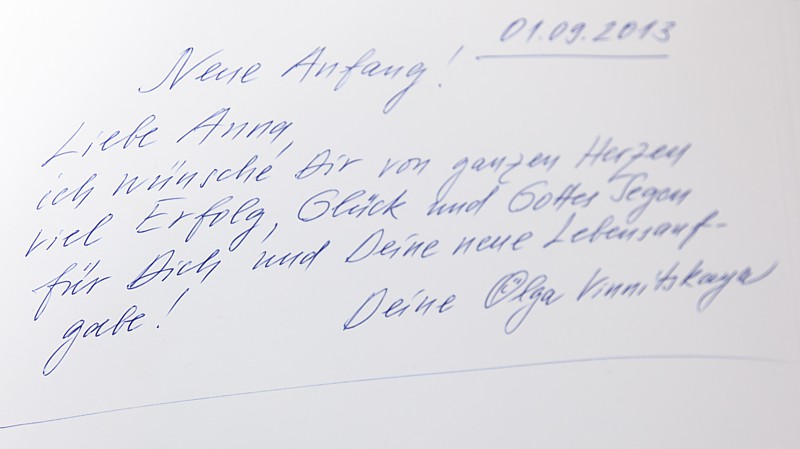 01.09.2013
Neue Anfang!
Liebe Anna,
ich wünsche Dir von ganzen Herzen
viel Erfolg, Glück und Gottes Segen
für Dich und Deine neue Lebensauf-
gabe!
Deine Olga Vinnitskaya